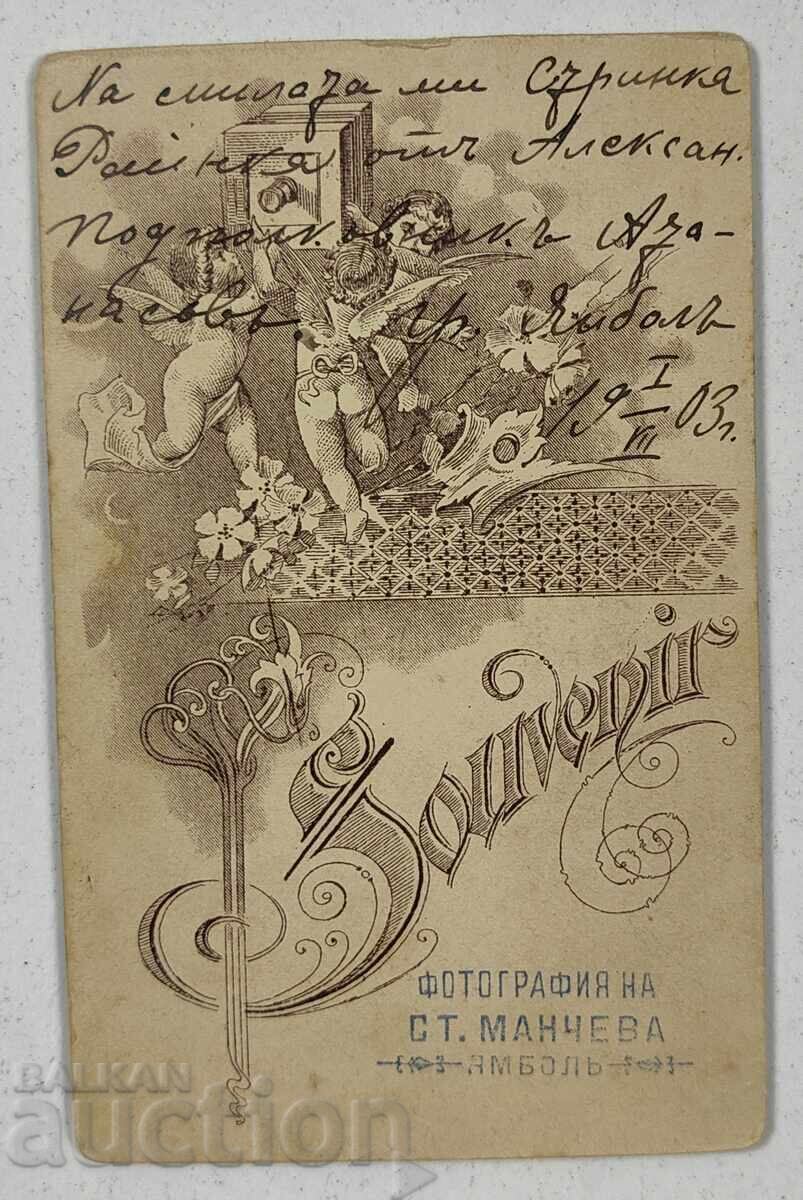 На милата ми Стринка
Раинка отъ Алексан.
подполковникъ Ата-
насовъ. гр. Ямболъ
19 I/III 03 г.
Souvenir
ФОТОГРАФИЯ НА
СТ. МАНЧЕВА
ЯМБОЛЬ
BALKAN
auction